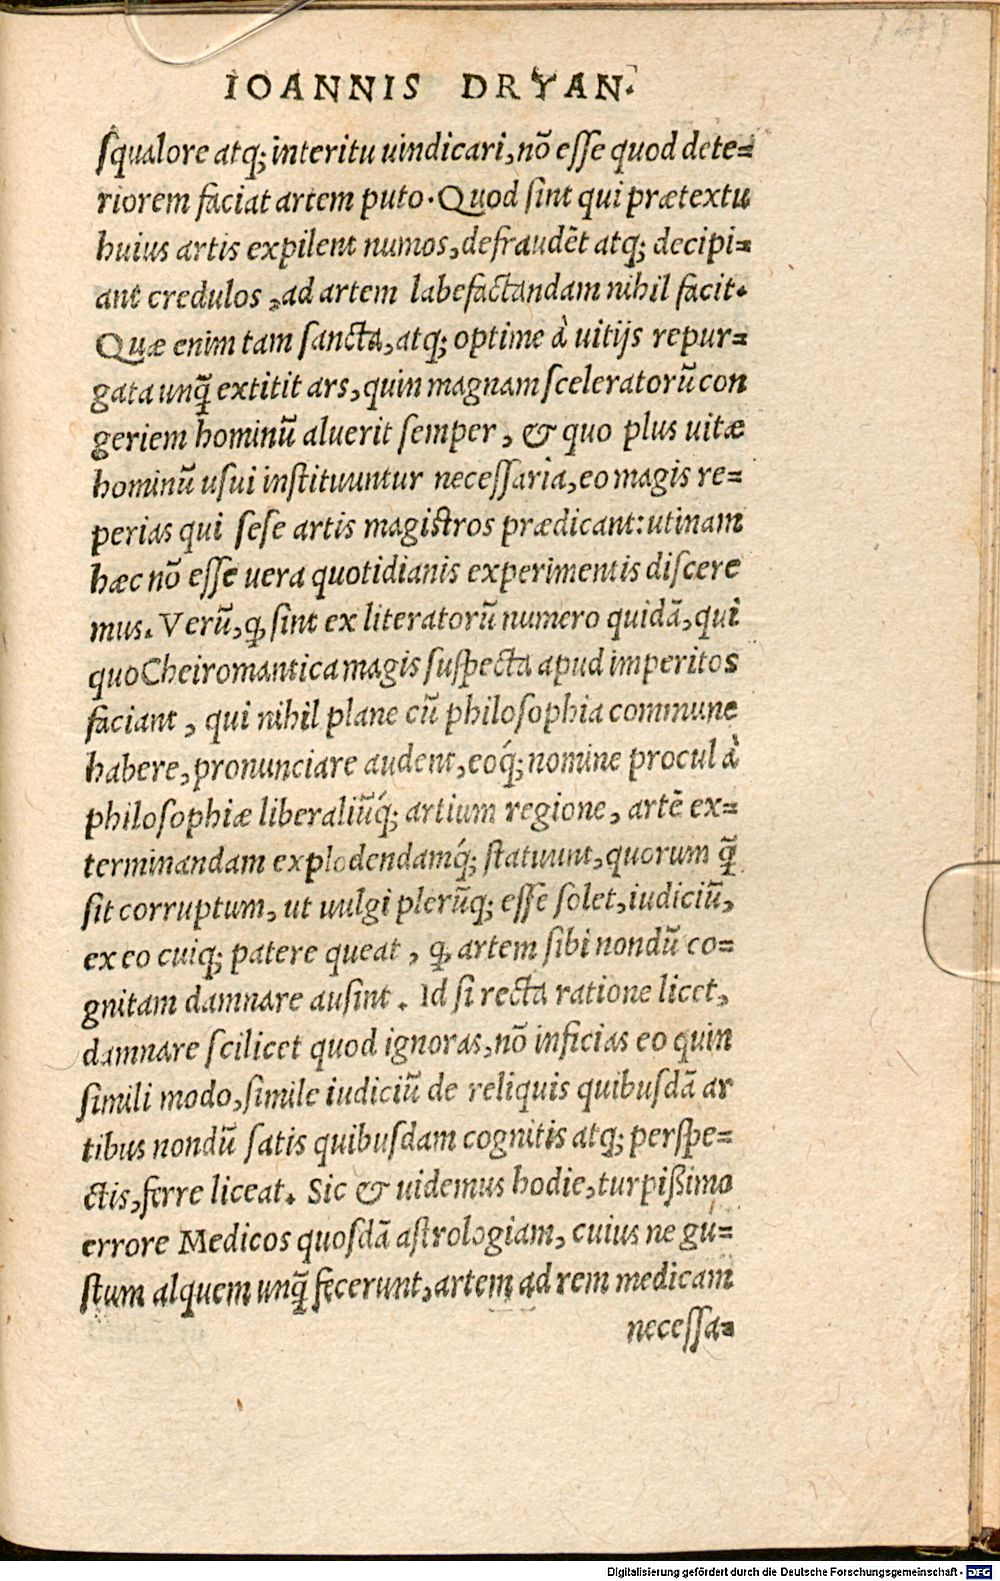 141
IOANNIS DRYAN.
ſqualore atq; interitu uindicari, nõ eſſe quod dete=
riorem faciat artem puto. Quod ſint qui prætextu
huius artis expilent numos, defraudẽt atq; decipi=
ant credulos, ad artem labefactandam nihil facit.
Quæ enim tam ſancta, atq; optime à uitijs repur=
gata unq̃ extitit ars, quin magnam ſceleratorũ con
geriem hominũ aluerit ſemper, & quo plus uitæ
hominũ uſui inſtituuntur neceſſaria, eo magis re=
perias qui ſeſe artis magiſtros prædicant: utinam
hæc nõ eſſe vera quotidianis experimentis diſcere
mus. Verũ, ꝙ ſint ex literatorũ numero quidã, qui
quo Cheiromantica magis ſuſpecta apud imperitos
faciant, qui nihil plane cũ philoſophia commune
habere, pronunciare audent, eoq́; nomine procul à
philoſophiæ liberaliũq́; artium regione, artẽ ex=
terminandam explodendamq́; ſtatuunt, quorum q̃
ſit corruptum, ut uulgi plerũq; eſſe ſolet, iudiciũ,
ex eo cuiq; patere queat, ꝙ artem ſibi nondũ co=
gnitam damnare auſint. Id ſi recta ratione licet,
damnare ſcilicet quod ignoras, nõ inficias eo quin
ſimili modo, ſimile iudiciũ de reliquis quibuſdã ar
tibus nondũ ſatis quibuſdam cognitis atq; perſpe=
ctis, ferre liceat. Sic & uidemus hodie, turpißimo
errore Medicos quoſdã aſtrologiam, cuius ne gu=
ſtum alquem unq̃ fecerunt, artem ad rem medicam
neceſſa=
Digitalisierung gefördert durch die Deutsche Forschungsgemeinschaft - DFG